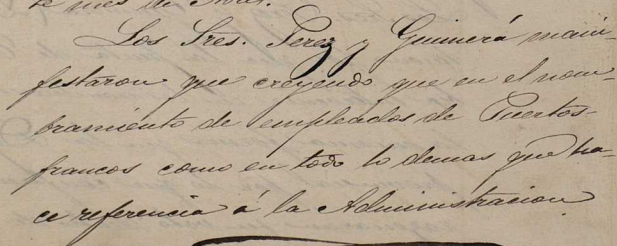 te mes de Abril.
Los Sres. Perez y Guimerá mani-
festaron que creyendo que en el nom-
bramiento de empleados de Puertos-
francos como en todo lo demas que ha-
ce referencia á la Administracion